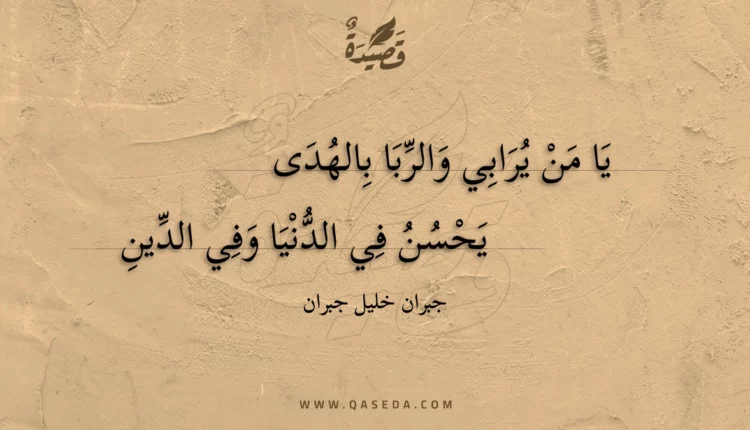 قَصِيدَةٌ
يَا مَنْ يُرَابِي وَالرِّبَا بِالهُدَى
يَحْسُنُ فِي الدُّنْيَا وَفِي الدِّينِ
جبران خليل جبران
WWW.QASEDA.COM